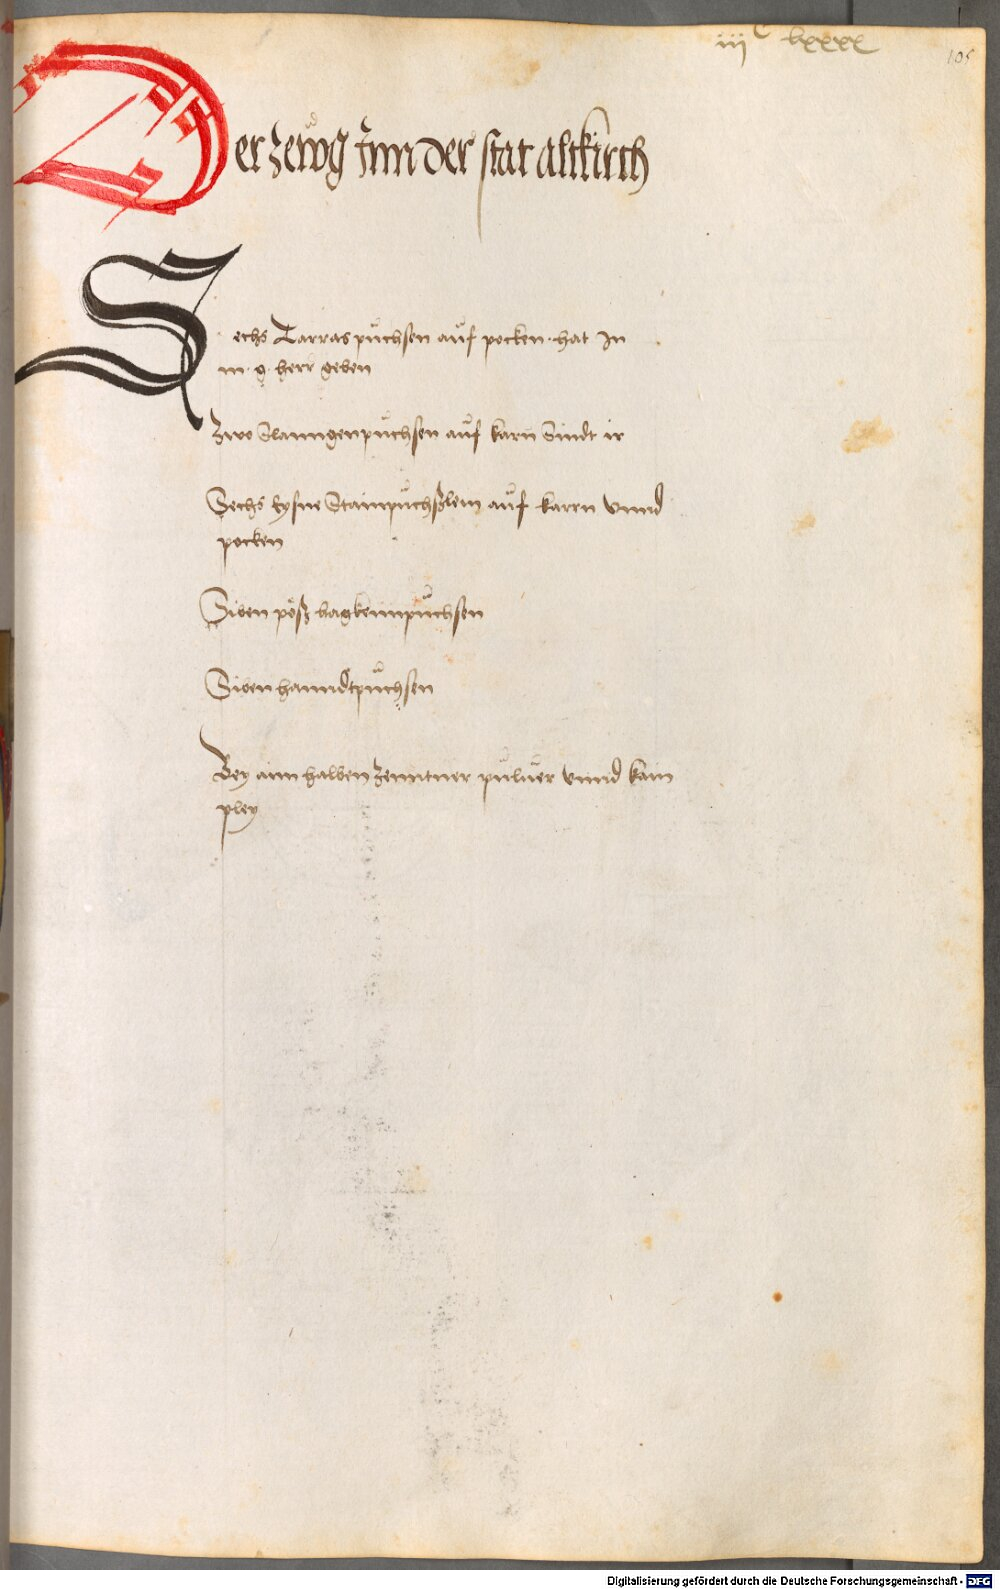 iijᶜ lxxxx
105
Der zeẘg Jnn der stat altkirch
Sechs Tarraspůchsen aůf pocken · hat In
m · g · herr geben
Zwo Slanngenpůchsen aůf karn sindt ir
Sechs eysne Stainpůchßlein aůf karrn vnnd
pocken
Siben pöß hagkennpůchsen
Siben hanndtpůchsen
Bey ainn halben Zenntner půluer vnnd kain
pley
Digitalisierung gefördert durch die Deutsche Forschungsgemeinschaft - DFG